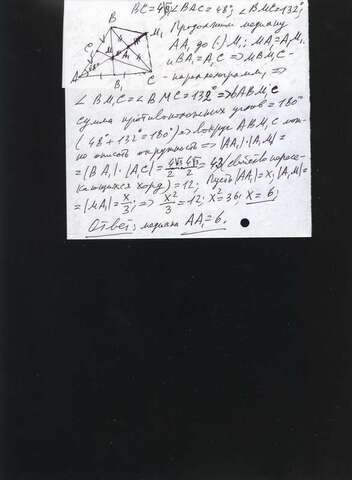 BC=4√3, ∠BAC=48°, ∠BMC=132°,
Продолжим медиану
AA₁ до (·) M₁; MA₁=A₁M₁
и BA₁=A₁C ⇒ MBM₁C -
- параллелограмм, ⇒
∠BM₁C=∠BMC=132° ⇒ в ABM₁C
сумма противоположных углов = 180°
(48°+132°=180°) ⇒ вокруг ABM₁C мож-
но описать окружность ⇒ |AA₁|·|A₁M₁|=
=|BA₁|·|A₁C|= 4√3/2 · 4√3/2 = (свойство пересе-
кающихся хорд) =12; Пусть |AA₁|=x, |A₁M₁|=
=|MA₁|= x/3; ⇒ x²/3 =12; x²=36; x=6;
Ответ: медиана AA₁=6.
B
M₁
C₁
M
A₁
A
B₁
C
48°